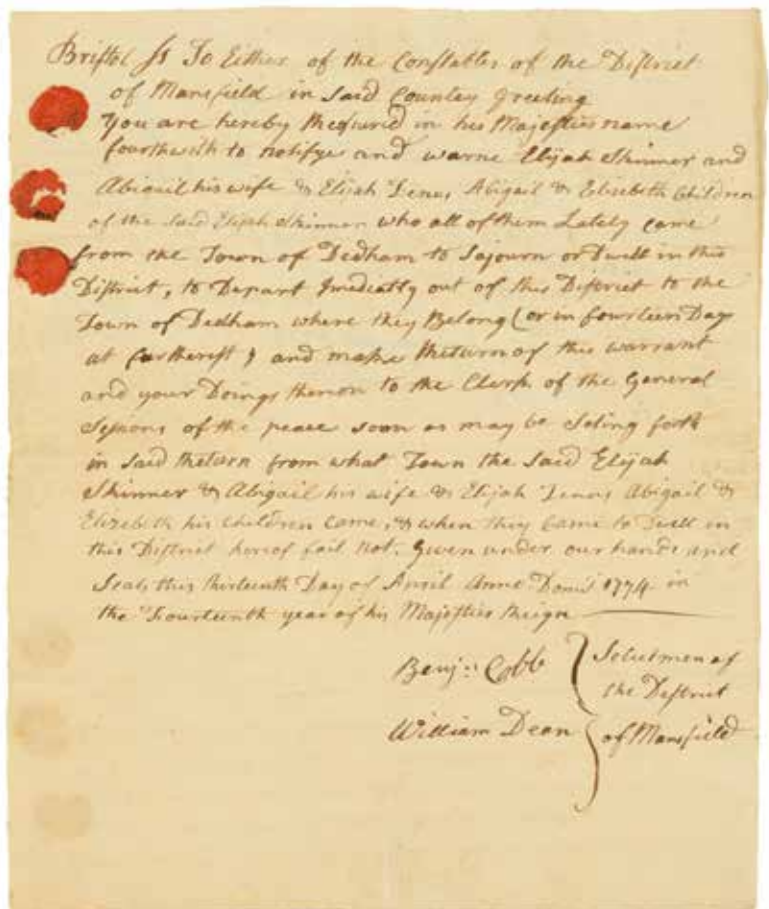 Bristol Ss To Either of the Constables of the District
of Mansfield in Said County Greeting
You are hereby Required in his Majesties name
fourthwith to notifye and warne Elijah Skinner and
Abigail his wife & Elijah Abigail & Elizebeth Children
of the Said Elijah Skinner who all of them Lately came
from the Town of Dedham to Sojourn or Dwell in this
District, to Depart Imediatly out of this District to the
Town of Dedham where they Belong (or in fourteen Days
at furtherest) and make Return of this warrant
and your Doings thereon to the Clerk of the General
Sessions of the peace soon as may be Seting forth
in Said Return from what Town the Said Elijah
Skinner & Abigail his wife & Elijah Abigail &
Elizebeth his Children Came, & when they Came to Dwell in
this District hereof fail not. Given under our hands and
Seals this thirteenth Day of April Anno Domi 1774 in
the Fourteenth year of his Majesties Reign
Benjn Cobb
William Dean
Selectmen of
the District
of Mansfield